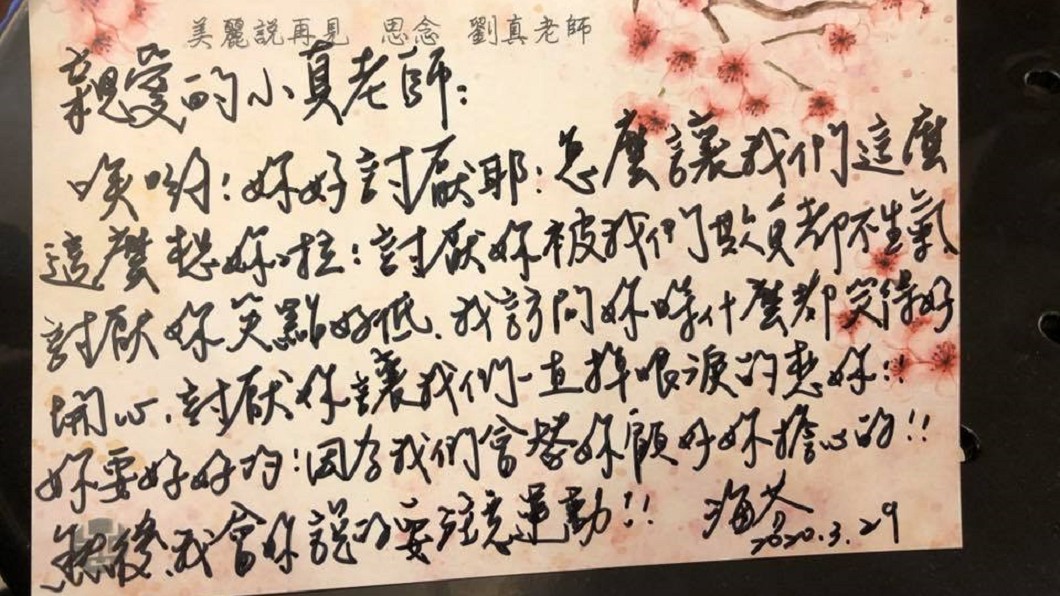 美麗說再見 思念 劉真老師
親愛的小真老師：
唉喲！妳好討厭耶！怎麼讓我們這麼
這麼想妳啦！討厭妳被我們欺負都不生氣
討厭妳笑點好低、我訪問妳啥什麼都笑得好
開心、討厭妳讓我們一直掉眼淚的想妳!!
妳要好好的！因為我們會替妳顧好妳擔心的!!
然後、我會妳說的要注意運動!!
海芬
2020.3.29